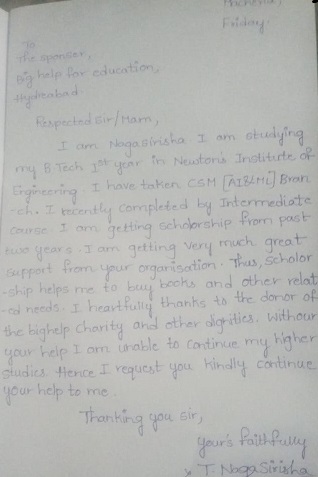 Macherla,
Friday.
To
The sponser,
Big help for education,
Hyderabad
Respected Sir/Mam,
I am Nagasirisha. I am studying
my B.Tech 1st year in Newton's Institute of
Engineering. I have taken CSM [AI&ML] Bran
-ch. I recently completed by Intermediate
course. I am getting scholorship from past
two years. I am getting very much great
support from your organisation. Thus, scholor
-ship helps me to buy books and other relat
-ed needs. I heartfully thanks to the donor of
the bighelp charity and other dignities. Withour
your help I am unable to continue my higher
studies. Hence I request you kindly continue
your help to me.
Thanking you sir,
your's faithfully
T. Naga Sirisha